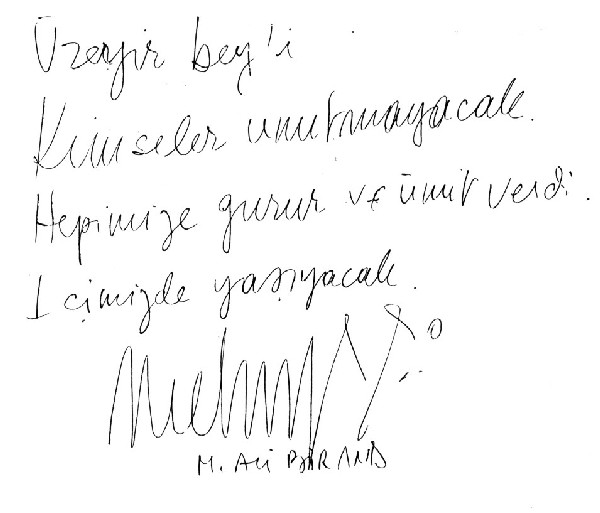 Üzeyir bey'i
Kimseler unutmayacak.
Hepimize gurur ve ümit verdi.
Içimizde yaşıyacak.
M. Ali BİRAND